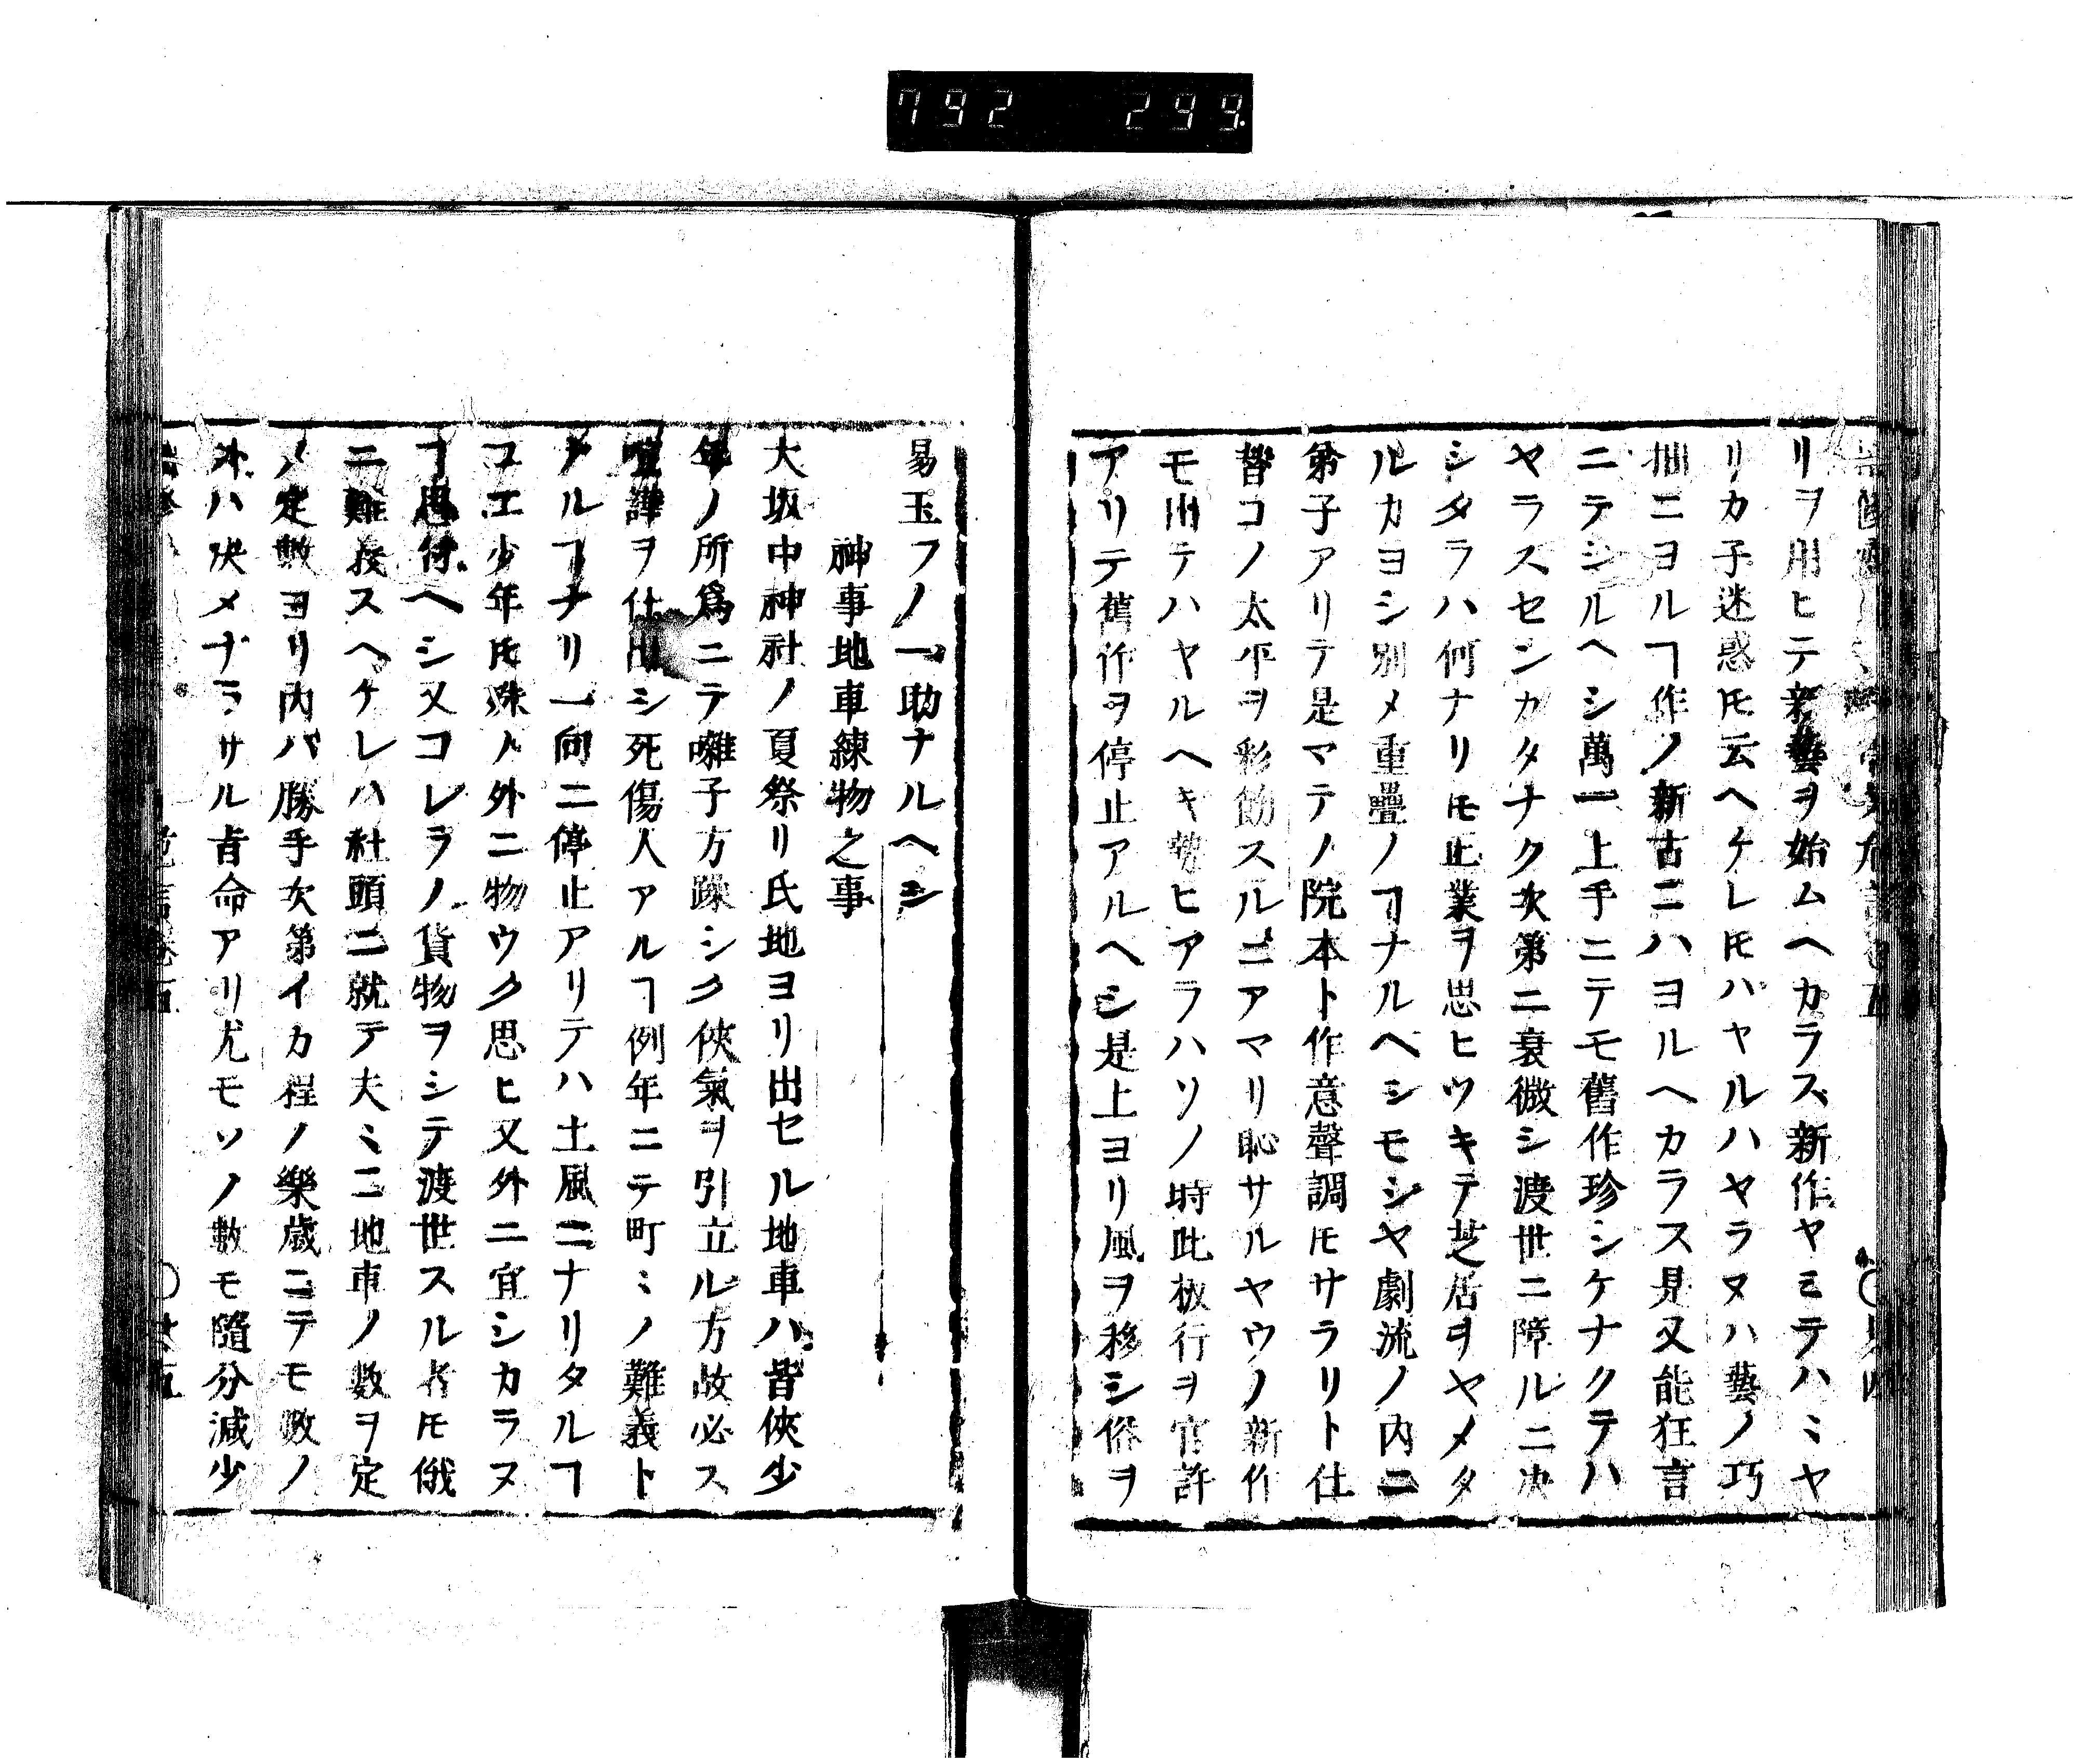 792 299
リヲ用ヒテ新藝ヲ始ムヘカラス新作ヤミテハミヤ
リカ子迷惑𪜈云ヘケレ𪜈ハヤルハヤラヌハ藝ノ巧
拙ニヨルヿ作ノ新古ニハヨルヘカラス見又能狂言
ニテシルヘシ萬一上手ニテモ舊作珍シケナクテハ
ヤラスセンカタナク次第ニ衰微シ渡世ニ障ルニ决
シタラハ何ナリ𪜈正業ヲ思ヒツキテ芝居ヲヤメタ
ルカヨシ別メ重疊ノヿナルヘシモシヤ劇流ノ内ニ
弟子アリテ是マテノ院本ト作意聲調𪜈サラリト仕
替コノ太平ヲ彩飾スルニアマリ恥サルヤウノ新作
モ出テハヤルヘキ勢ヒアラハソノ時此板行ヲ官許
アリテ舊作ヲ停止アルヘシ是上ヨリ風ヲ移シ俗ヲ
易玉フノ一助ナルヘシ
神事地車練物之事
大坂中神社ノ夏祭リ氏地ヨリ出セル地車ハ皆俠少
年ノ所爲ニテ囃子方躁シク俠氣ヲ引立ル方故必ス
喧譁ヲ仕出シ死傷人アルヿ例年ニテ町ミノ難義ト
ナルヿナリ一向ニ停止アリテハ土風ニナリタルヿ
ユエ少年𪜈殊ノ外ニ物ウク思ヒ又外ニ宜シカラヌ
ヿ思付ヘシ又コレラノ貨物ヲシテ渡世スル者𪜈俄
ニ難義スヘケレハ社頭ニ就テ夫ミニ地車ノ數ヲ定
メ定數ヨリ内ハ勝手次第イカ程ノ樂歳ニテモ數ノ
外ハ决メナラサル旨命アリ尤モソノ數モ隨分減少